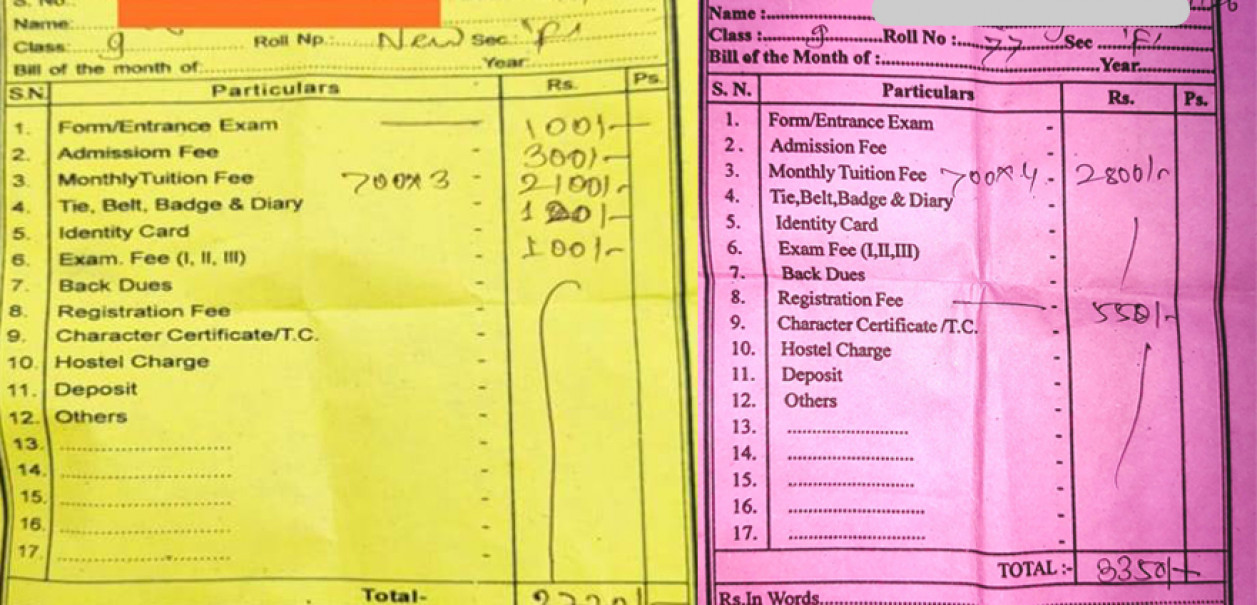 Name:
Class: 9 Roll Np.: New Sec: 'F'
Bill of the month of: Year:
S.N. Particulars Rs. Ps.
1. Form/Entrance Exam - 100/-
2. Admissiom Fee - 300/-
3. MonthlyTuition Fee 700x3 - 2100/-
4. Tie, Belt, Badge & Diary -
5. Identity Card -
6. Exam. Fee (I, II, III) - 100/-
7. Back Dues -
8. Registration Fee -
9. Character Certificate/T.C. -
10. Hostel Charge -
11. Deposit -
12. Others -
13. -
14. -
15. -
16. -
17. -
Total-
Name :
Class : 9 Roll No : 77 Sec 'F'
Bill of the Month of : Year
S. N. Particulars Rs. Ps.
1. Form/Entrance Exam -
2. Admission Fee -
3. Monthly Tuition Fee 700x4 - 2800/-
4. Tie,Belt,Badge & Diary -
5. Identity Card -
6. Exam Fee (I,II,III) -
7. Back Dues -
8. Registration Fee - 550/-
9. Character Certificate /T.C. -
10. Hostel Charge -
11. Deposit -
12. Others -
13. -
14. -
15. -
16. -
17. -
TOTAL :- 3350/-
Rs.In Words